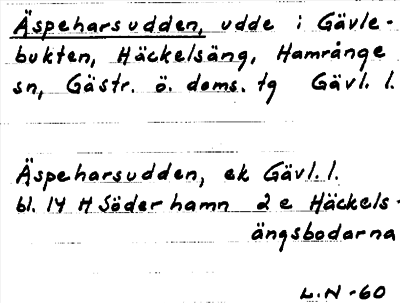 Äspeharsudden, udde i Gävle-
bukten, Häckelsäng, Hamrånge
sn, Gästr. ö. doms. tg Gävl. l.
Äspeharsudden, ek Gävl. l.
bl. 14 H Söderhamn 2 e Häckels-
ängsbodarna
L.N -60